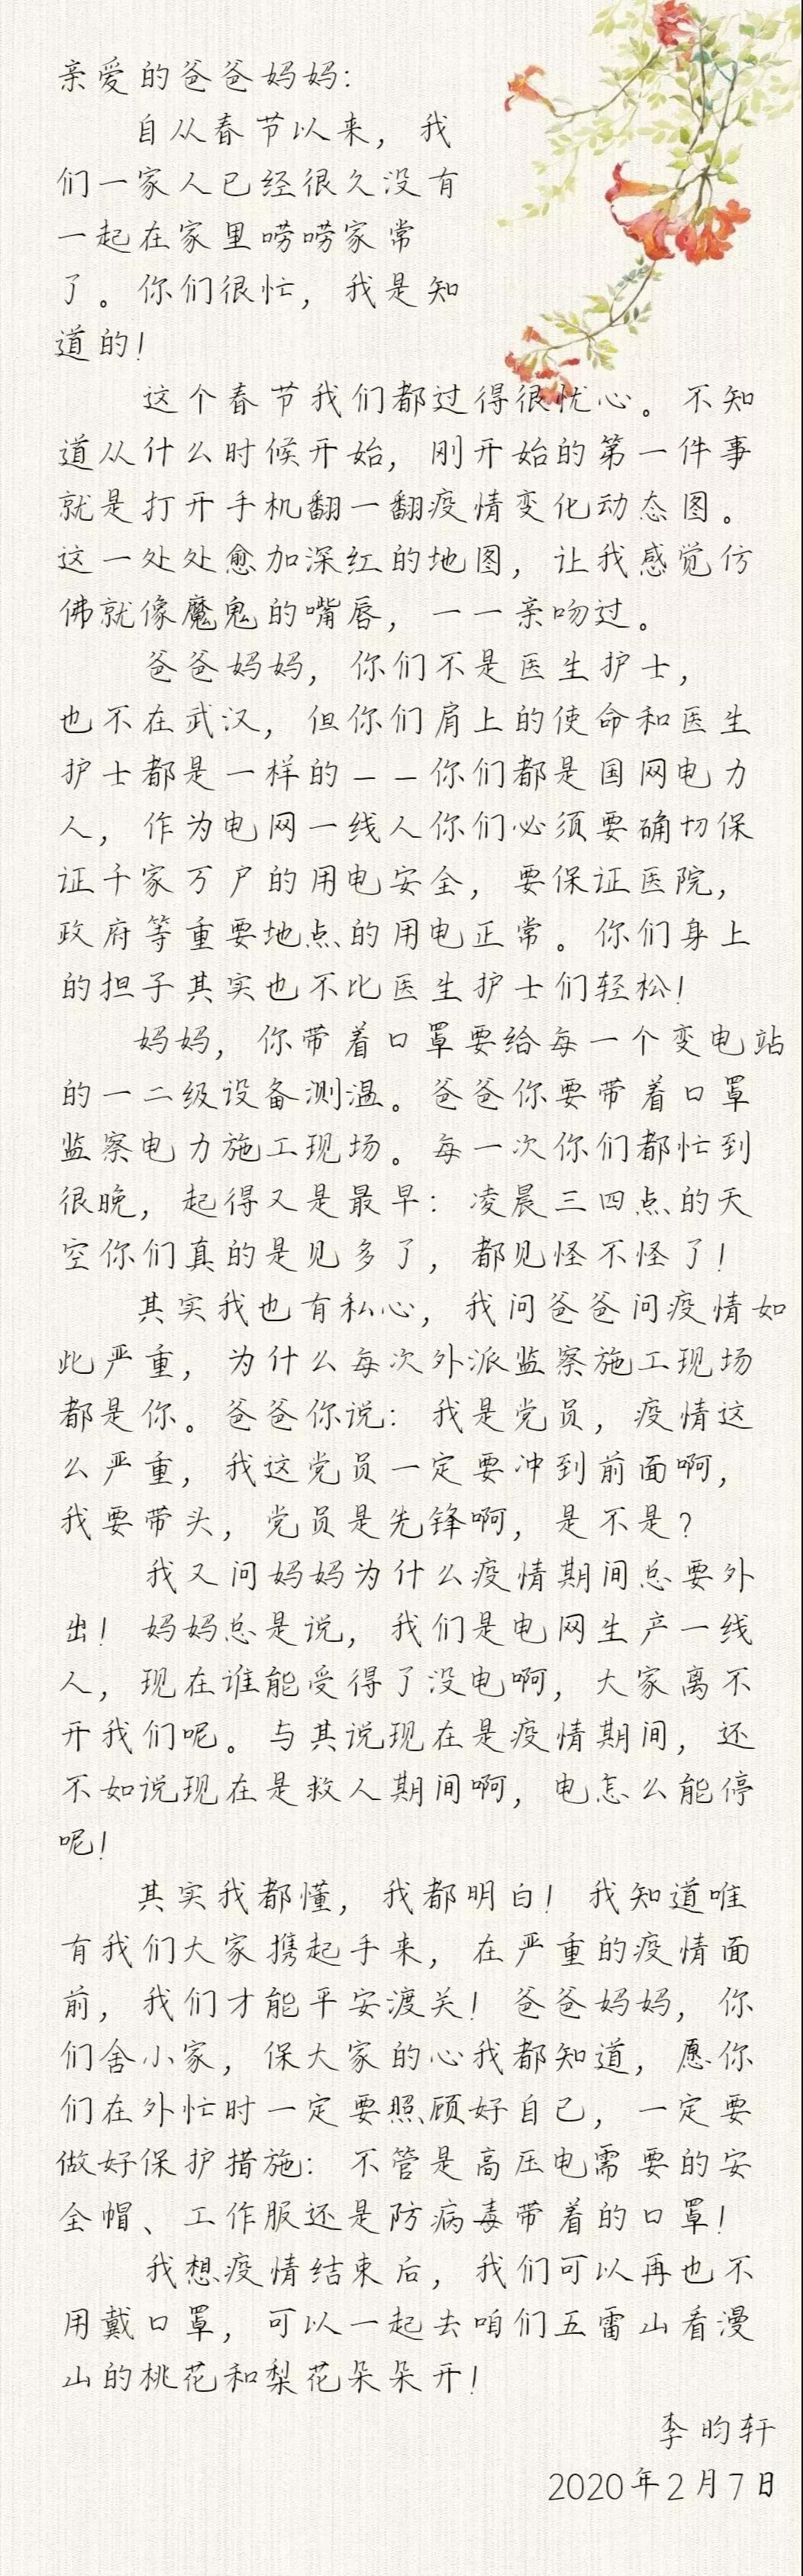 亲爱的爸爸妈妈：
自从春节以来，我
们一家人已经很久没有
一起在家里唠唠家常
了。你们很忙，我是知
道的！
这个春节我们都过得很忧心。不知
道从什么时候开始，刚开始的第一件事
就是打开手机翻一翻疫情变化动态图。
这一处处愈加深红的地图，让我感觉仿
佛就像魔鬼的嘴唇，一一亲吻过。
爸爸妈妈，你们不是医生护士，
也不在武汉，但你们肩上的使命和医生
护士都是一样的——你们都是国网电力
人，作为电网一线人你们必须要确切保
证千家万户的用电安全，要保证医院，
政府等重要地点的用电正常。你们身上
的担子其实也不比医生护士们轻松！
妈妈，你带着口罩要给每一个变电站
的一二级设备测温。爸爸你要带着口罩
监察电力施工现场。每一次你们都忙到
很晚，起得又是最早：凌晨三四点的天
空你们真的是见多了，都见怪不怪了！
其实我也有私心，我问爸爸问疫情如
此严重，为什么每次外派监察施工现场
都是你。爸爸你说：我是党员，疫情这
么严重，我这党员一定要冲到前面啊，
我要带头，党员是先锋啊，是不是？
我又问妈妈为什么疫情期间总要外
出！妈妈总是说，我们是电网生产一线
人，现在谁能受得了没电啊，大家离不
开我们呢。与其说现在是疫情期间，还
不如说现在是救人期间啊，电怎么能停
呢！
其实我都懂，我都明白！我知道唯
有我们大家携起手来，在严重的疫情面
前，我们才能平安渡关！爸爸妈妈，你
们舍小家，保大家的心我都知道，愿你
们在外忙时一定要照顾好自己，一定要
做好保护措施：不管是高压电需要的安
全帽、工作服还是防病毒带着的口罩！
我想疫情结束后，我们可以再也不
用戴口罩，可以一起去咱们五雷山看漫
山的桃花和梨花朵朵开！
李昀轩
2020年2月7日